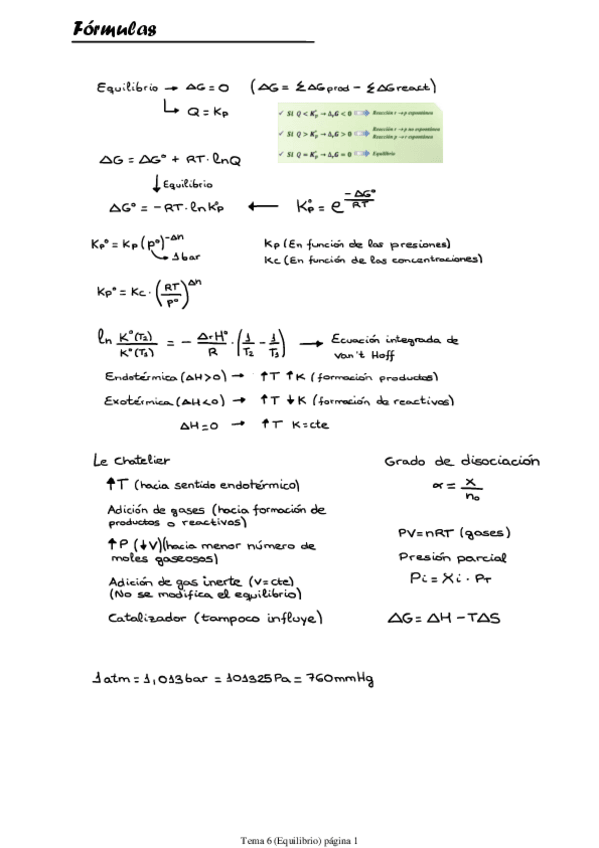 Fórmulas
Equilibrio → ΔG = 0 (ΔG = ΣΔG prod - ΣΔG react)
↳ Q = Kp
✓ Si Q < K°p → ΔrG < 0 ⇒ Reacción r → p espontánea
✓ Si Q > K°p → ΔrG > 0 ⇒ Reacción r → p no espontánea
Reacción p → r espontánea
✓ Si Q = K°p → ΔrG = 0 ⇒ Equilibrio
ΔG = ΔG° + RT·lnQ
↓ Equilibrio
ΔG° = -RT·lnK°p ← K°p = e^(-ΔG°/RT)
Kp° = Kp (p°)^-Δn
↳ 1bar
Kp (En función de las presiones)
Kc (En función de las concentraciones)
Kp° = Kc · (RT/p°)^Δn
ln K°(T2)/K°(T1) = - ΔrH°/R · (1/T2 - 1/T1) → Ecuación integrada de
van't Hoff
Endotérmica (ΔH>0) → ↑T ↑K (formación productos)
Exotérmica (ΔH<0) → ↑T ↓K (formación de reactivos)
ΔH=0 → ↑T K=cte
Le Chatelier
↑T (hacia sentido endotérmico)
Adición de gases (hacia formación de
productos o reactivos)
↑P (↓V)(hacia menor número de
moles gaseosos)
Adición de gas inerte (V=cte)
(No se modifica el equilibrio)
Catalizador (tampoco influye)
Grado de disociación
α = x/n₀
PV=nRT (gases)
Presión parcial
Pi = Xi · PT
ΔG = ΔH - TΔS
1atm = 1,013bar = 101325Pa = 760mmHg
Tema 6 (Equilibrio) página 1